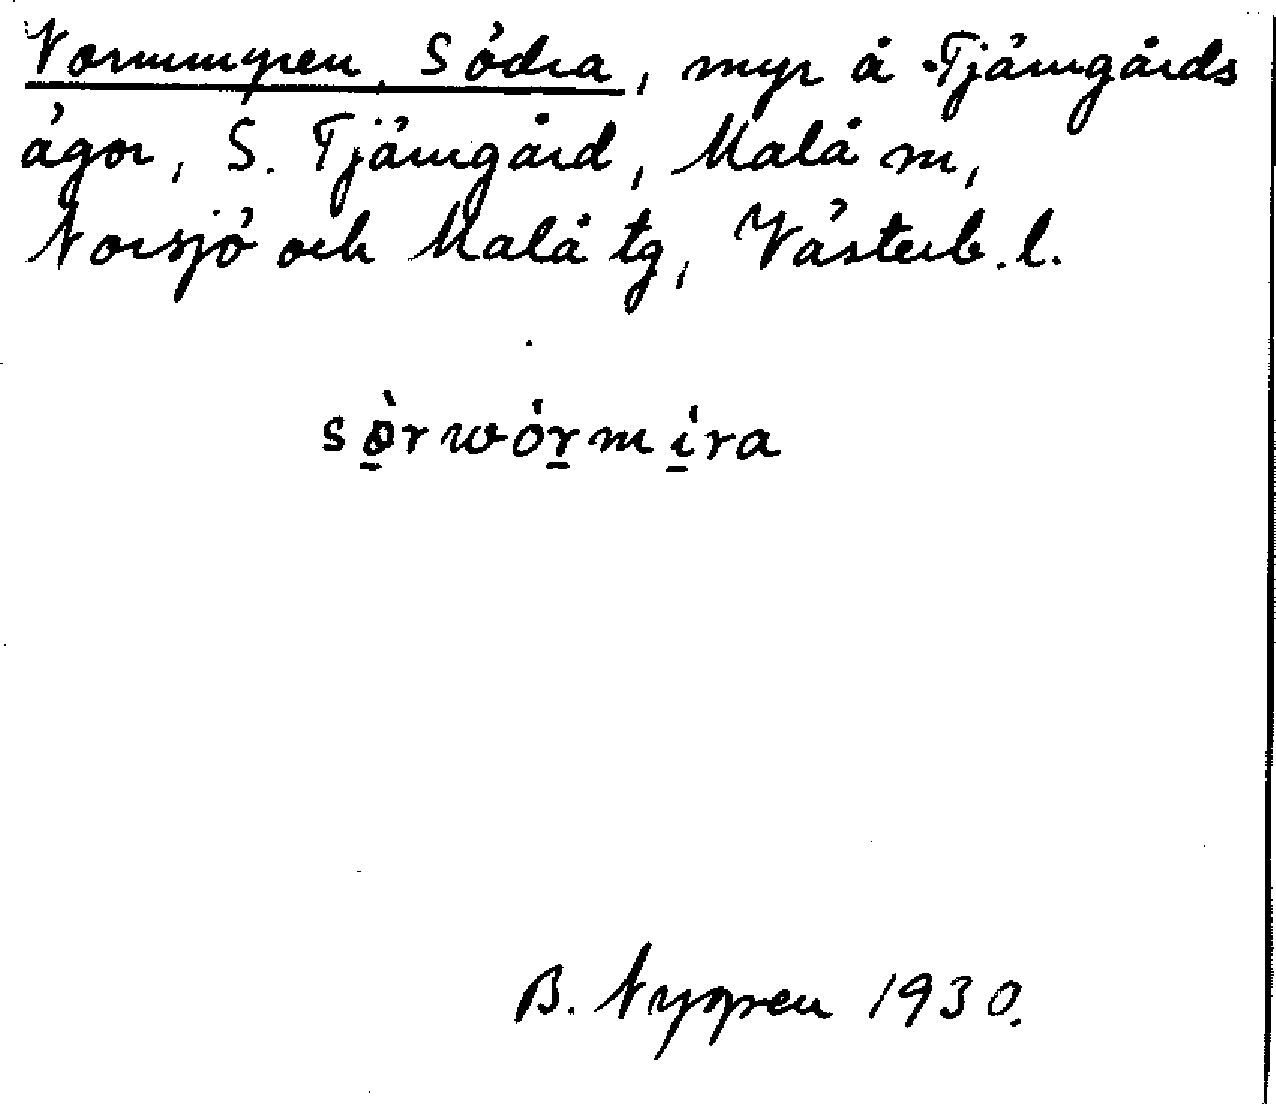 Vormmyren, Södra, myr å Tjämgårds
ägor, S. Tjämgård, Malå sn,
Norsjö och Malå tg, Västerb. l.
sö̠̀rwór̠mí̠ra
B. Nygren 1930.